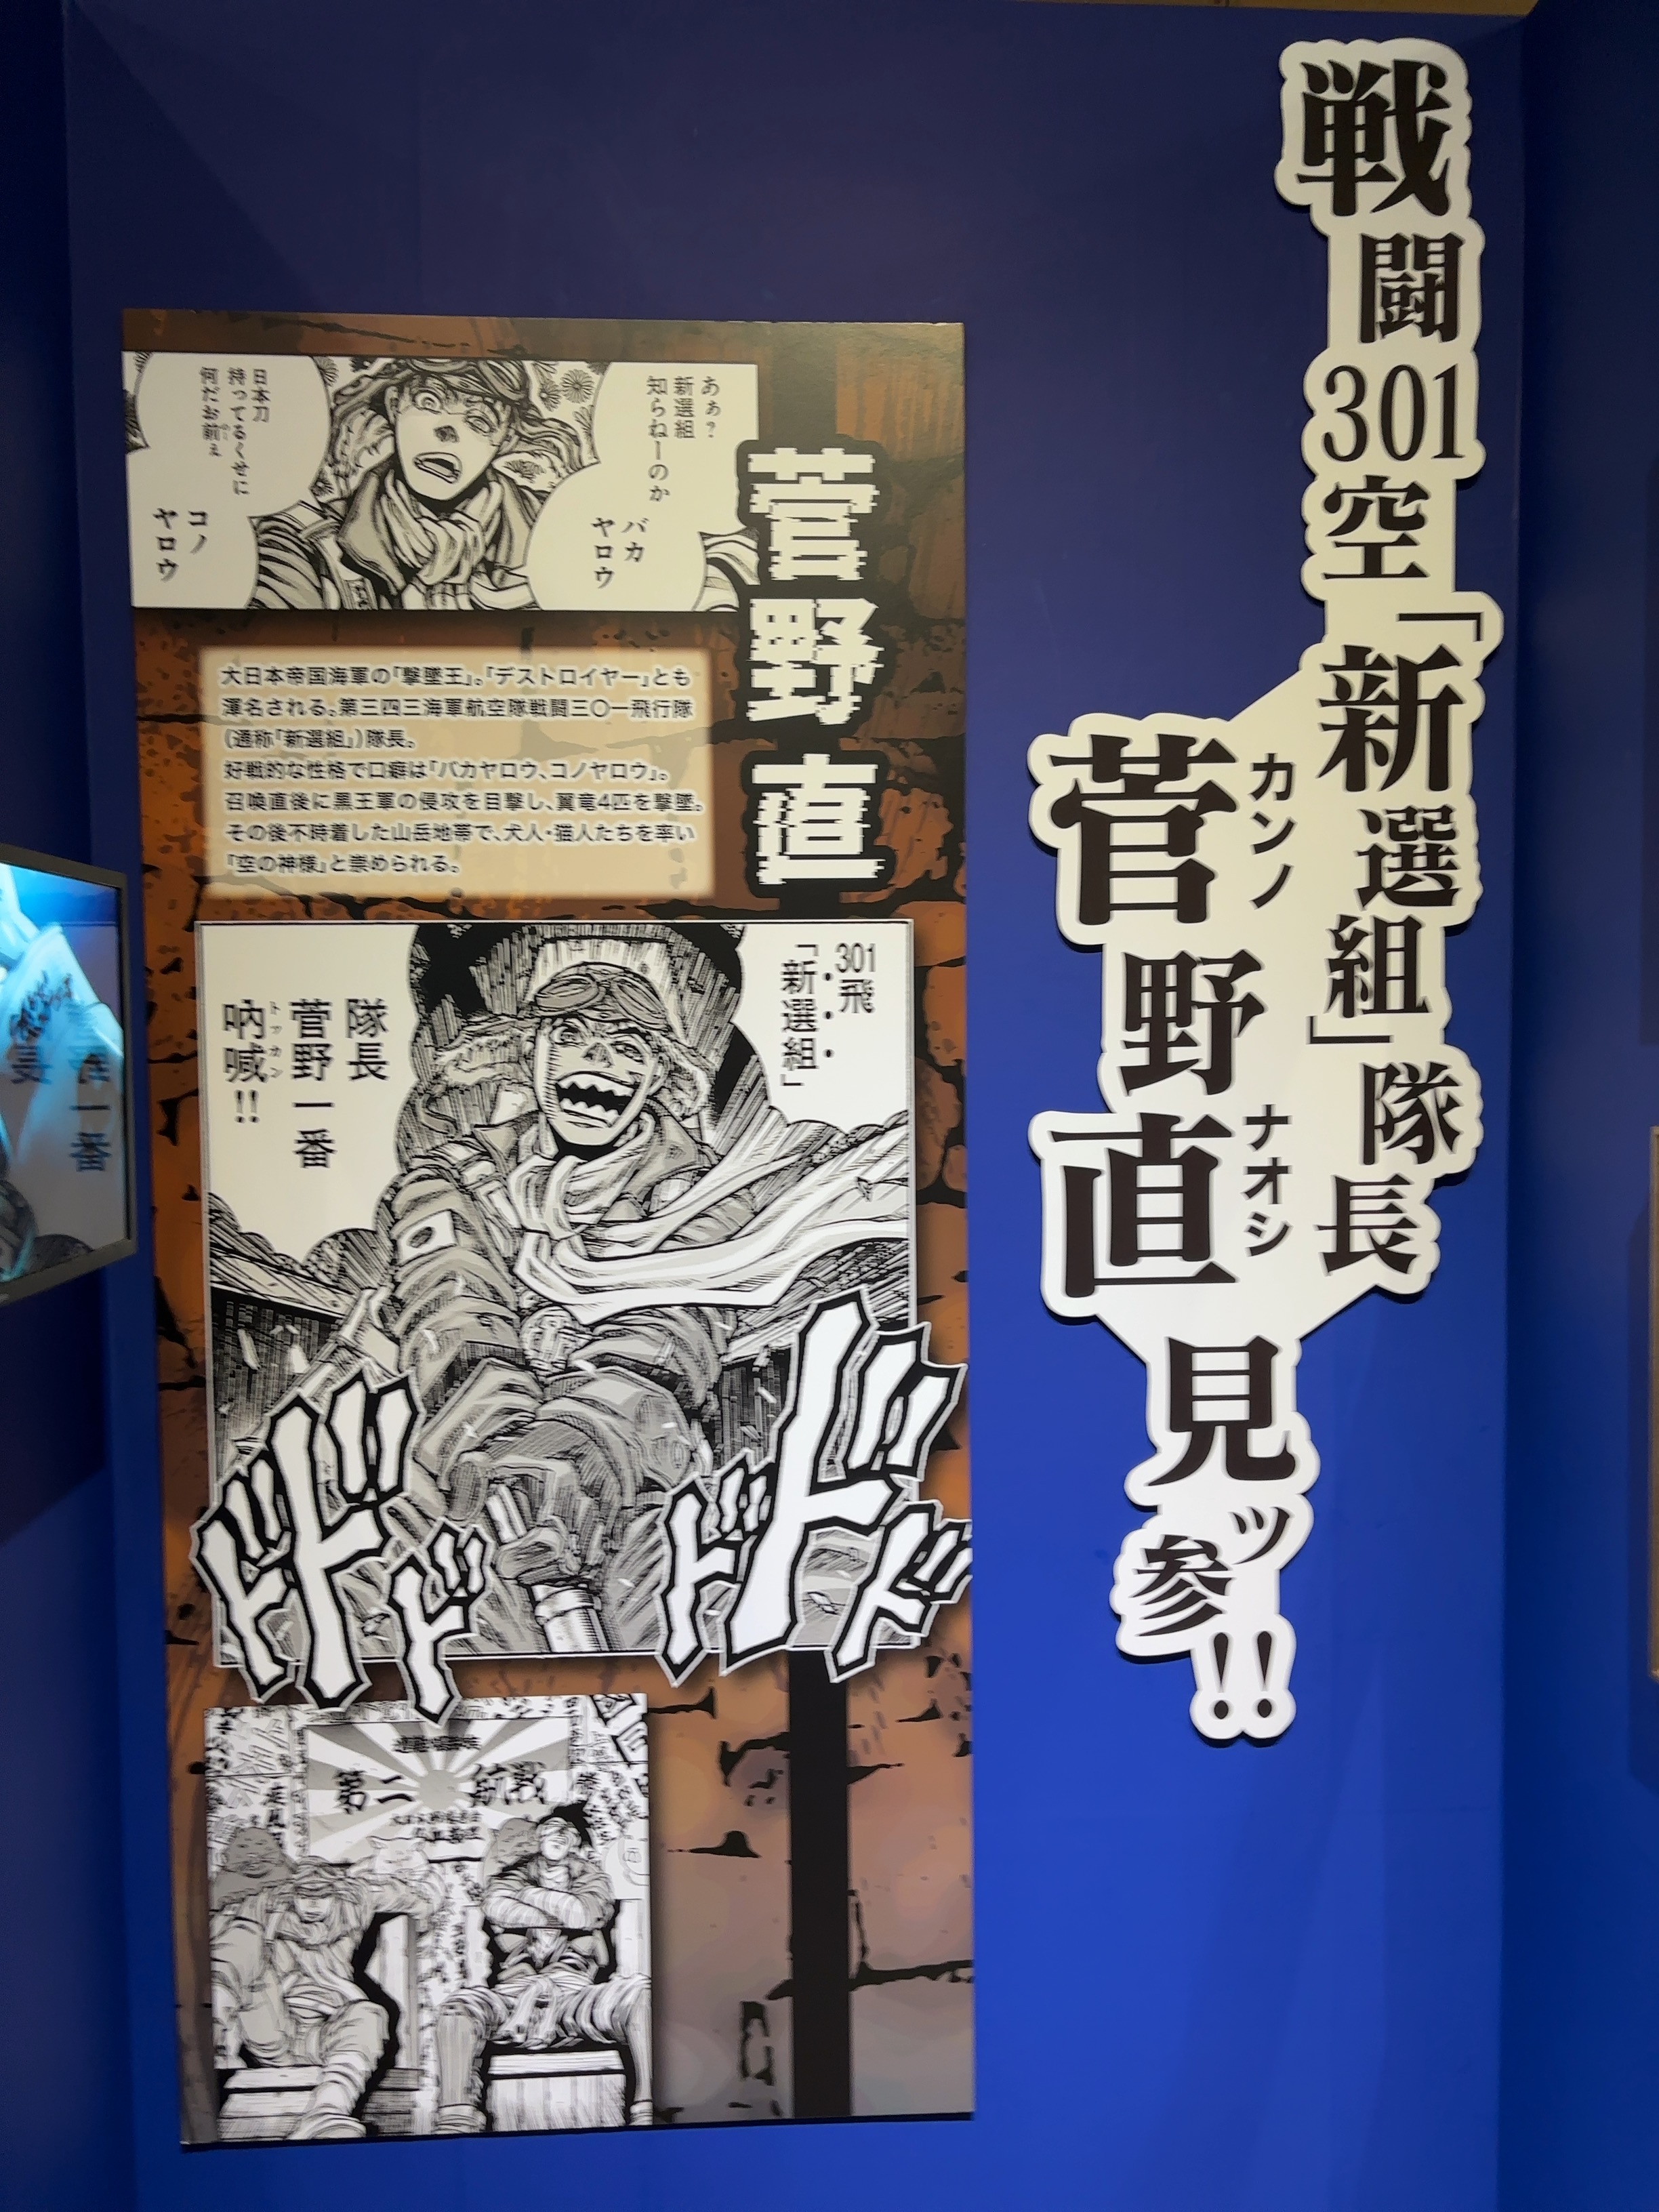 戦闘301空「新選組」隊長
カンノ ナオシ
菅野直
見ッ参!!
菅野直
あぁ？
新選組
知らねーのか
バカ
ヤロウ
日本刀
持ってるくせに
何だお前ぇ
コノ
ヤロウ
大日本帝国海軍の「撃墜王」。「デストロイヤー」とも
渾名される。第三四三海軍航空隊戦闘三〇一飛行隊
(通称「新選組」)隊長。
好戦的な性格で口癖は「バカヤロウ、コノヤロウ」。
召喚直後に黒王軍の侵攻を目撃し、翼竜4匹を撃墜。
その後不時着した山岳地帯で、犬人・猫人たちを率い
「空の神様」と崇められる。
301飛
「新選組」
隊長
菅野一番
トッカン
吶喊!!
ドドド
ドドド
第二 航戦
一番